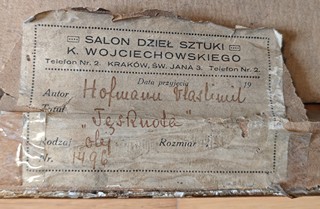 SALON DZIEŁ SZTUKI
K. WOJCIECHOWSKIEGO
Telefon Nr. 2. KRAKÓW, ŚW. JANA 3. Telefon Nr. 2.
Data przyjęcia 19
Autor Hofmann Wlastimil
Tytuł
„Tęsknota"
Rodzaj olej Rozmiar
Nr. 1496